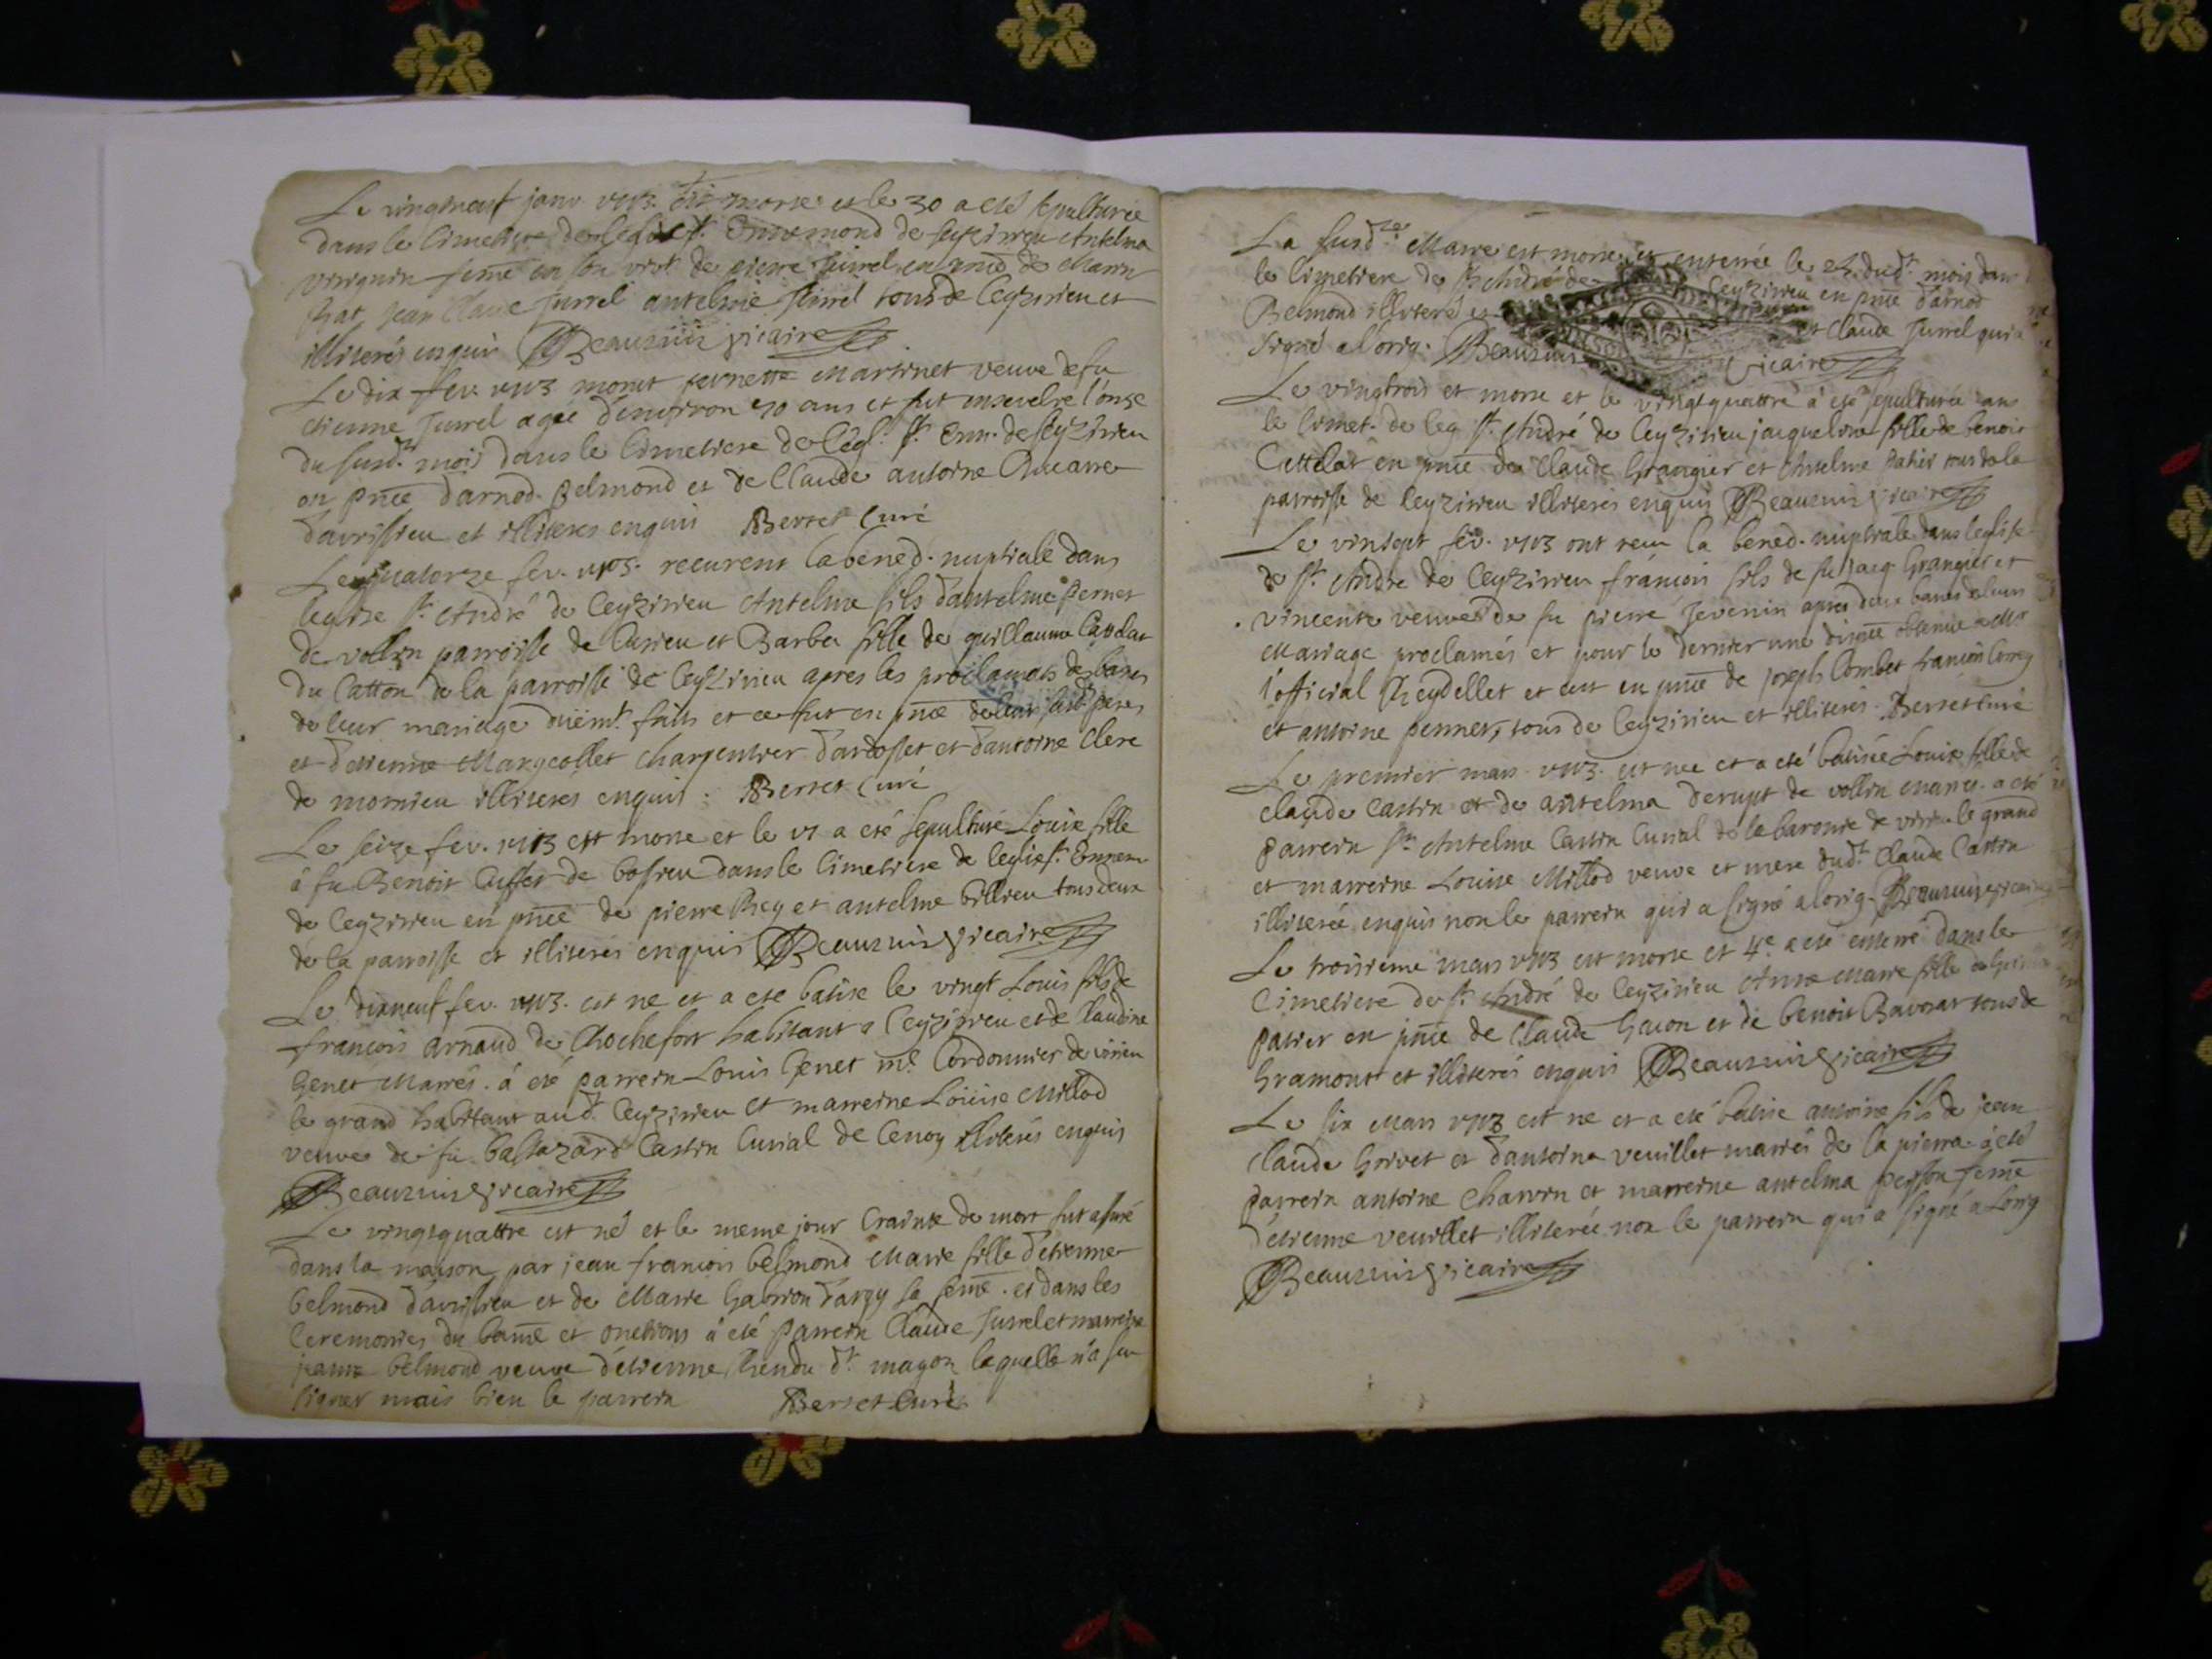 Le vingtneuf janv. 1713. est morte et le 30 a eté sepulturée
dans le cimetiere de leglise St. Ennemond de ceyzirieu Antelma
feme en son viv.t de pierre Jurrel en pnce de Marin
jean Claude Jurrel antelmie Jurrel tous de Ceyzirieu et
illiterés enquis Beauzuis vicaire
Le dix fev. 1713 morut pernette Martinet veuve de fu
etienne Jurrel agée d'environ 70 ans et fut ensevelie l'onze
du susd.t mois dans le Cimetiere de l'egl. St. Enn. de Ceyzirieu
en pnce d'arnod Belmond et de Claude antoine
d'avrissieu et illiteres enquis Berret Curé
Le quatorze fev. 1713. recurent la bened. nuptiale dans
leglise St. André de Ceyzirieu Antelme fils dantelme Pernet
de vollin parroisse de et Barba fille de guillaume Cattelat
du Catton de la parroisse de Ceyzirieu apres les proclamaōs des bans
de leur mariage düem.t faits et ce fut en pnce de leur susd. peres
et d'etienne Margeollet charpentier d'ardosset et dantoine Clerc
de mornieu illiteres enquis. Berret Curé
Le seize fev. 1713 est morte et le 17 a eté sepulturé Louise fille
à fu Benoit Cusset de bossieu dans le Cimetiere de leglise St. Ennem.
de Ceyzirieu en pnce de pierre Rey et antelme billieu tous deux
de la parroisse et illiterés enquis Beauzuis vicaire
Le dixneuf fev. 1713. est ne et a ete batisé le vingt Louis fils de
francois arnaud de Rochefort habitant a Ceyzirieu et de Claudine
Genet Mariés. à eté parrein Louis Genet m.e Cordonnier de virieu
le grand habitant aud.t Ceyzirieu et marreine Louise Millod
veuve de fu baltazard Castin Curial de Cenoy illiterés enquis
Beauzuis vicaire
Le vingtquattre est né et le meme jour Crainte de mort fut
dans la maison par jean francois belmond Marie fille d'etienne
belmond d'avrissieu et de Marie d'argy sa feme. et dans les
Ceremonies du bame et onctions à eté parrein Claude Jurrel et marreine
jeanne belmond veuve d'etienne d.t maçon laquelle n'a seu
signer mais bien le parrein Berret Curé
La susd.te Marie est morte et enterrée le dud.t mois dans
le Cimetiere de St André de Ceyzirieu en pnce d'arnod
Belmond illiteré et Claude Jurrel qui a
signé a lorig. Beauzuis Vicaire
Le vingtrois et morte et le vingtquattre a eté sepulturée dans
le Cimet. de leg St. André de Ceyzirieu jaqueline fille de benoit
Cattelat en pnce de Claude Grangier et Antelme Patier tous de la
parroisse de Ceyzirieu illiterés enquis Beauzuis vicaire
Le vinsept fev. 1713 ont receu la bened. nuptiale dans leglise
de St. Andre de Ceyzirieu francois fils de fu jacq. Grangier et
vincente veuve de fu pierre Jevenin apres deux bans de leur
Mariage proclamés et pour le dernier une dispce obtenue de Mr
l'official Reydellet et cest en pnce de joseph Combet francois
et antoine pernet, tous de Ceyzirieu et illiterés. Berret Curé
Le premier mars 1713. est nee et a eté batisée Louise fille de
claude Castin et de antelma derupt de vollin mariés. a eté
parrein Sr. Antelme Castin Curial de la baronie de virieu le grand
et marreine Louise Millod veuve et mere dud.t Claude Castin
illiterée enquis non le parrein qui a signé a lorig. Beauzuis vicaire
Le troisieme mars 1713 est morte et 4e a eté enterré dans le
Cimetiere de St. André de Ceyzirieu Anne Marie fille de
patier en pnce de Claude et de benoit tous de
Gramont et illiterés enquis Beauzuis vicaire
Le six Mars 1713 est né et a eté batisé antoine fils de jean
Claude Gorret et d'antoina veuillet mariés de la pierra. à eté
parrein antoine Charvin et marreine antelma feme
d'etienne veuillet illiterée non le parrein qui a signé a Lorig
Beauzuis vicaire